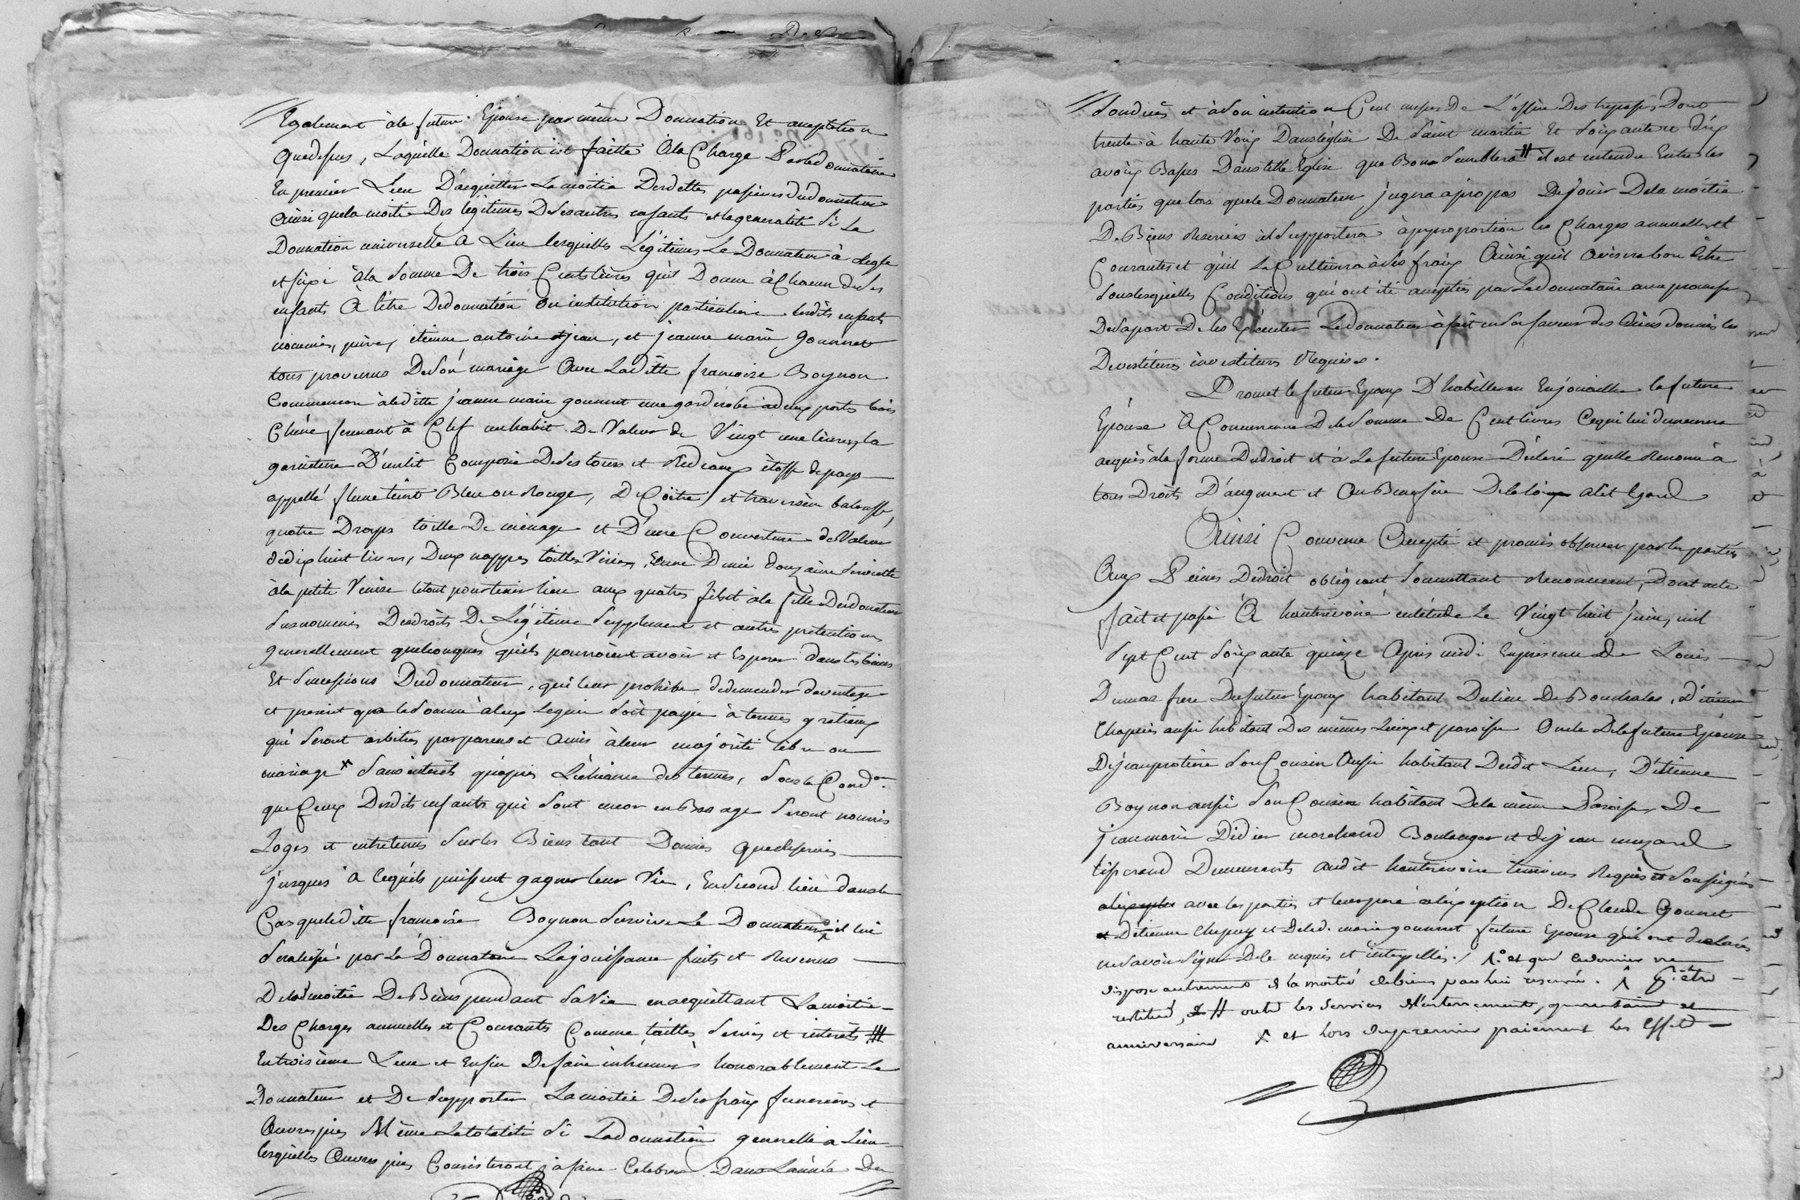 Egalement à la future Epouse par même Donnation Et acceptation
que dessus, Laquelle Donnation est faitte à la Charge par le donnataire
En premier Lieu D'acquitter La moitié Des dettes passives du donnateur
Ainsi que la moitié Des légitimes De ses autres enfants et la generalité si la
Donnation universelle a Lieu lesquelles Légitimes Le Donnateur à réglé
et fixé à la somme De trois Cent livres qu'il Donne à Chacun de ses
enfants à titre De donnation ou institution particuliere lesdits enfants
nommés, pierre, etienne, antoine et jean, et jeanne marie gonnet
tous provenus De son mariage Avec Laditte francoise Boynon
Comme encor à laditte jeanne marie gonnet une garderobe à deux portes bois
Chêne fermant à Clef un habit De Valeur de Vingt une livres, la
garniture D'un lit Composée De ses tours et Rideaux étoffe de pays
appellé teint Bleu ou Rouge, De Coître, et traversin baloufe,
quatre Draps toille De menage et D'une Couverture de Valeur
de dix huit livres, Deux nappes toilles Venise, Et une Demie douzaine serviette
à la petite Venise le tout pour tenir lieu aux quatre fils et à la fille Du donnateur
susnommés Des droits De Légitime supplement et autres pretentions
generallement quelconques qu'ils pourroient avoir et Esperer dans les biens
Et successions Du donnateur, qui leur prohibe de demander davantage
et qui seront arbitrés par parents et amis à leur majorité libre ou
mariage x sans interets qu'après L'échéance des termes, sous la Condon
que Ceux Desdits enfants qui sont encor en Bas age seront nourris
Logés et entretenus sur les Biens tant Donnés que reservés
jusques à ce qu'ils puissent gagner leur Vie, En second lieu dans le
Cas que laditte francoise Boynon survive Le Donnateur il lui
sera laissé par Le Donnataire La jouissance fruits et Revenus
De la moitié De Biens pendant sa Vie en acquittant La moitié
Des Charges annuelles et Courants Comme tailles servis et interets #
En troisieme Lieu et Enfin De faire inhumer honorablement Le
Donnateur et De supporter La moitié De ses fraix funeraires et
Oeuvres pies Même La totalité si La donnation generalle a Lieu
lesquelles Oeuvres pies Consisteront à faire Celebrer Dans L'année De
son dieces et à son intention Cent messes De L'office Des trepassés Dont
trente à haute Voix Dans l'église De Saint martin Et soixante et dix
a voix Basses Dans telle Eglise que Bon semblera # il est entendu Entre les
parties que lors que le Donnateur jugera à propos De jouir De la moitié
De Biens Reservés il supportera à proportion les Charges annuelles et
Courantes et qu'il La Cultivera à ses fraix Ainsi qu'il avisera bon être
sous lesquelles Conditions qui ont été acceptées par Le donnataire avec promesse
De sa part De les Executer Le Donnateur à fait en sa faveur des Biens donnés les
Devestitures investitures Requises.
Promet le futur Epoux D'habiller ou Enjoailler la future
Epouse A Concurrence De la somme De Cent livres Ce qui lui demeurera
acquis à la forme Du droit et à La future Epouse Déclaré qu'elle Renonce à
tous Droits D'augment et au Benefice De la loy à cet Egard
Ainsi Convenu Accepté et promis observer par les parties
Aux Peines De droit obligeant soumettant Renonceant, dont acte
fait et passé à hauterivoire en l'étude Le Vingt huit juin, mil
sept Cent soixante quinze Après midi En presence De Louis
Dumas frere Du futur Epoux habitant Du lieu De Bouchalas, D'etienne
Chapuis aussi habitant Des mêmes Lieux et paroisse Oncle De la future Epouse
De jean protiere son Cousin Aussi habitant Dudit Lieu, D'etienne
Boynon aussi son Cousin habitant De la même Paroisse, De
jean marie Didier marchand Boulanger et De jean mazard
tisserand Demeurants audit hauterivoire temoins Requis et soussignés
avec les parties et leur pere à l'exception De Claude Gonnet
D'etienne Chapuy et De lad. marie gonnet future Epouse qui ont déclarés
ne savoir signer De ce enquis et interpellés. / 1o et que ce dernier ne
dispose autrement de la moitié de biens par lui reservée. ^ pr. être
restitué, # outre les services d'enterrement, quarantaine et
anniversaire x et lors du premier paiement des effets